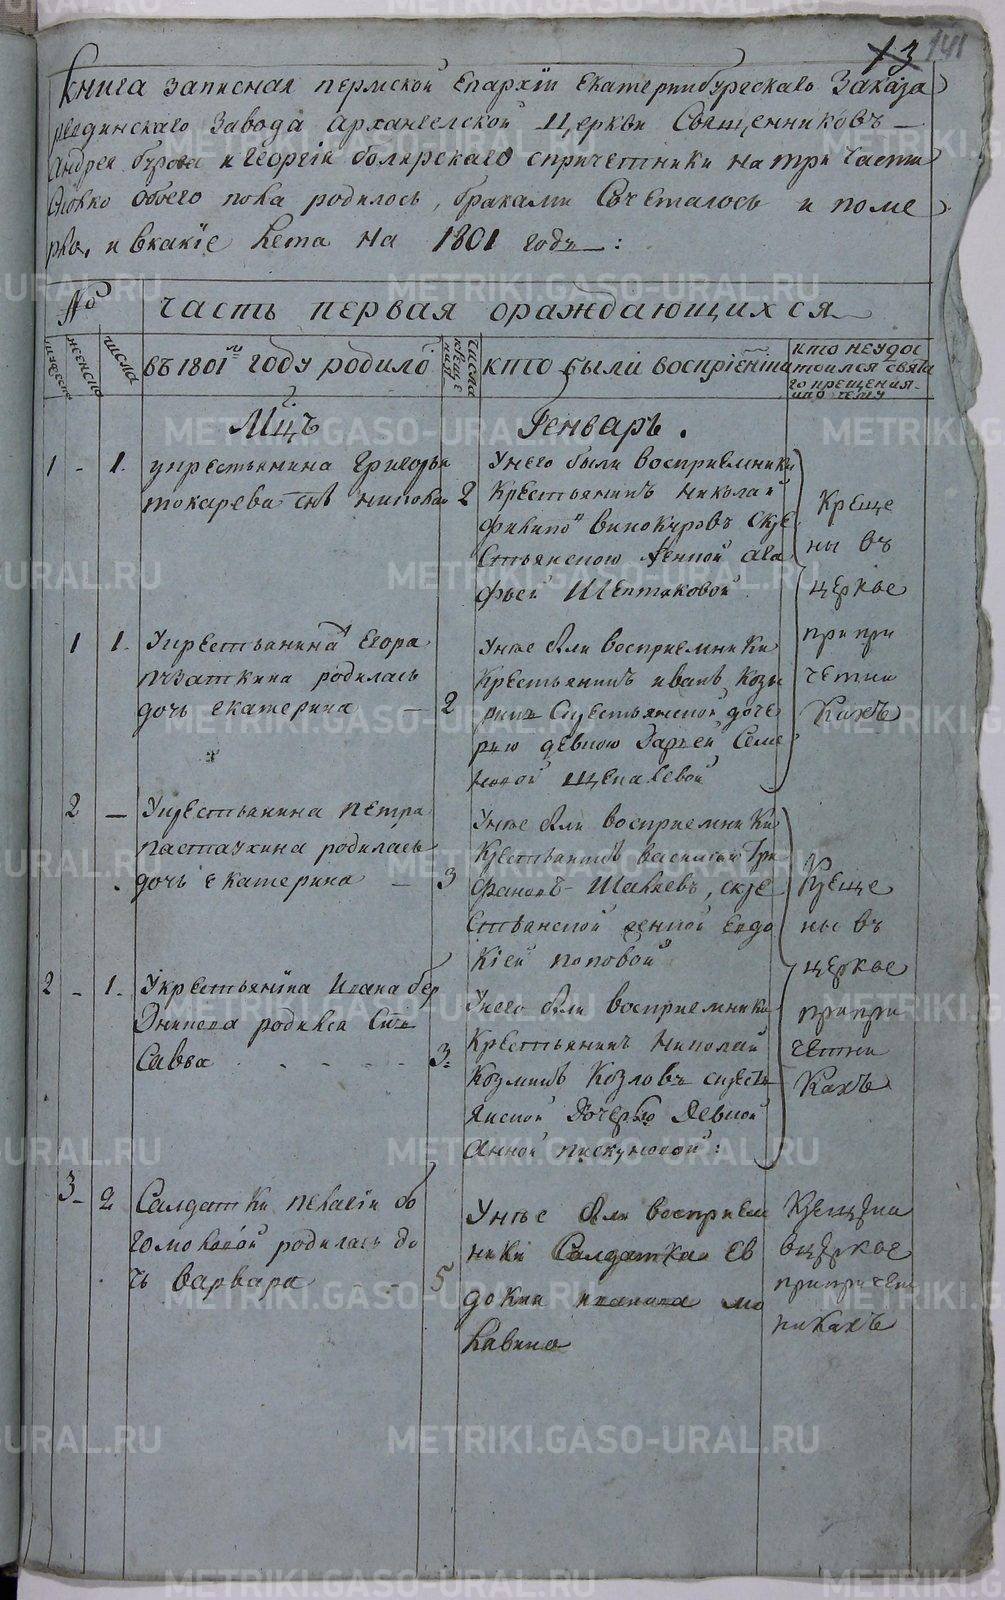 13 141
Книга записная пермской Епархіи Екатеринбургскаго Заказа
ревдинскаго Завода Архангелской Церкви Священниковъ
Андрея бурова и Георгія болярскаго спричетники на три части
Сколко обоего пола родилось, браками Сочеталось и поме
рло, и вкакіе Лета на 1801 годъ :
№ часть первая ораждающихся
мужеска женска числа въ 1801м году родило числа креще ния кто были восприемники кто неудос
тоился свята
го крещения
ипо чему
Мцъ Генварь .
1 - 1. укрестьянина Григорья
токарева снъ николай 2
Унего были восприемники
Крестьянинъ Николай
Филипо винокуровъ скре
стьянскою женкой ага
фьей Шептаковой
Креще
ны въ
церкве
при при
четни
кахъ
1 1. Укрестьянина Егора
родилась
дочь екатерина — 2
Унее были восприемники
Крестьянинъ иванъ Козы
ринъ Скрестьянской доче
рью девкою Дарьей Семе
новой Щекалевой
2 — Укрестьянина петра
пастаухина родилась
дочь екатерина — 3
Унее были восприемники
Крестьянинъ василей Три
фановъ Шавлевъ, скре
стьянской женкой Евдо
кіей поповой
Креще
ны въ
церкве
при при
четни
кахъ
2 - 1. Укрестьянина Ивана бер
родился Снъ
Савва - - - - 3.
Унего были восприемники
Крестьянинъ Николай
Козминъ Козловъ скресть
янской Дочерью Девкой
Анной пискуновой :
3 - 2 Салдатки пелагіи бо
гомоловой родилась до
чь варвара - - 5
Унее были восприем
ники Салдатка Ев
докия мо
лавина
Крещена
вцеркве
припричет
никахъ
METRIKI.GASO-URAL.RU